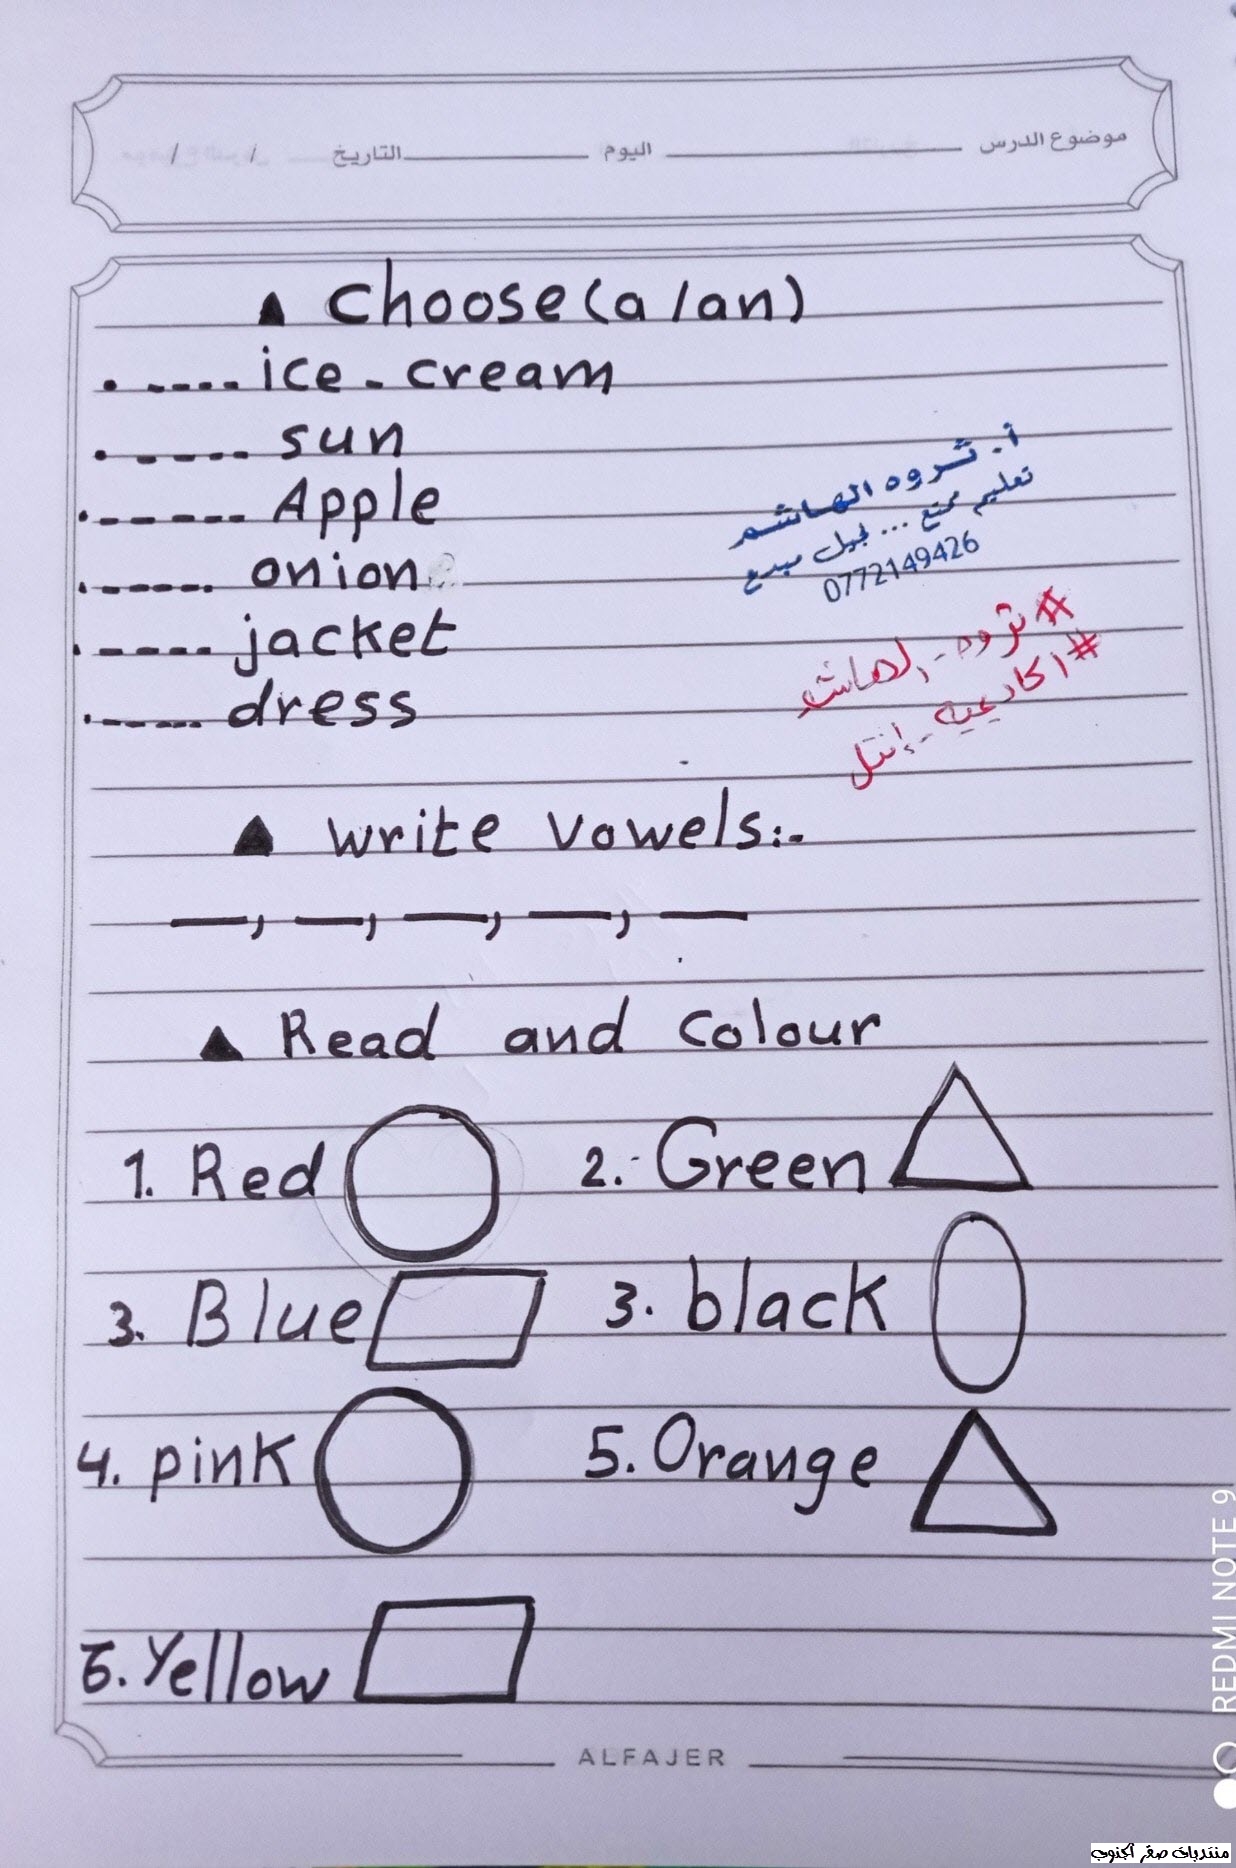 موضوع الدرس ــــــــ اليوم ــــــــ التاريخ / /
▲ Choose (a / an)
. ---- ice - cream
. ----- sun
. ------ Apple
. ----- onion
. ----- jacket
. ----- dress
أ. ثروه الهاشم
تعليم ممتع ... لجيل مبدع
0772149426
#ثروه_الهاشم
#اكاديمية_إنتل
▲ write vowels:-
—, —, —, —, —
▲ Read and colour
1. Red 2. Green
3. Blue 3. black
4. pink 5. Orange
6. Yellow
ALFAJER
REDMI NOTE 9
منتديات صقر الجنوب